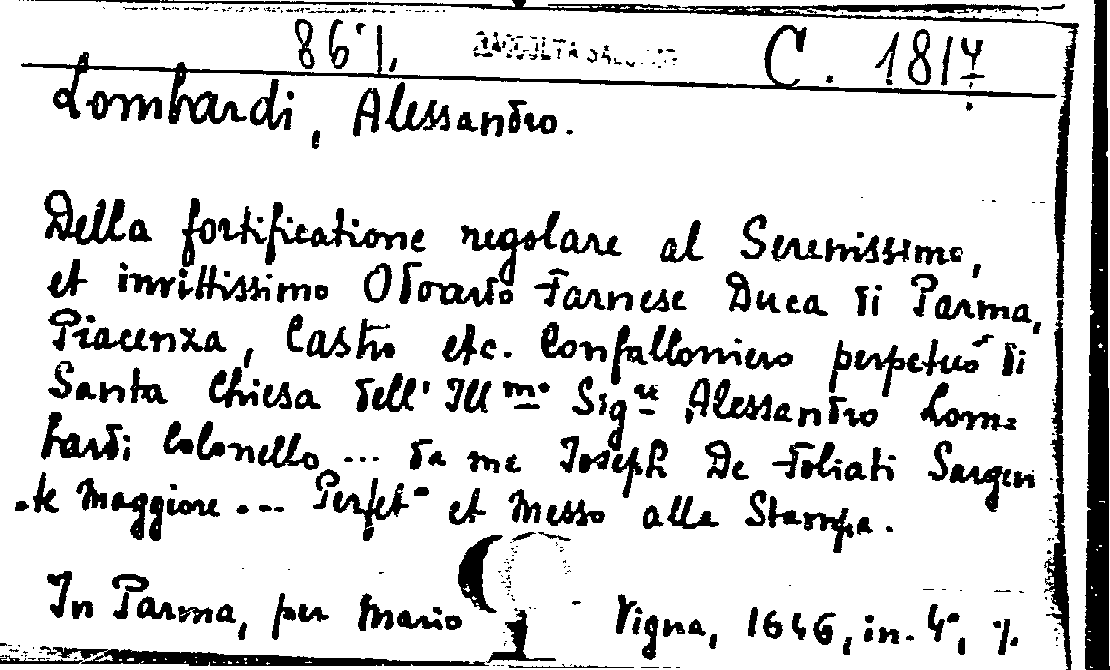 86·/. RACCOLTA SALUZZO C. 1817
Lombardi, Alessandro.
Della fortificatione regolare al Serenissimo,
et invittissimo Odoardo Farnese Duca di Parma,
Piacenza, Castro etc. Confalloniero perpetuo di
Santa Chiesa dell' Ill.mo Sig.re Alessandro Lom=
bardi Colonello ... da me Joseph De Foliati Sargen
-te Maggiore ... Perfet.o et Messo alla Stampa.
In Parma, per Mario Vigna, 1646, in-4°, ·/.